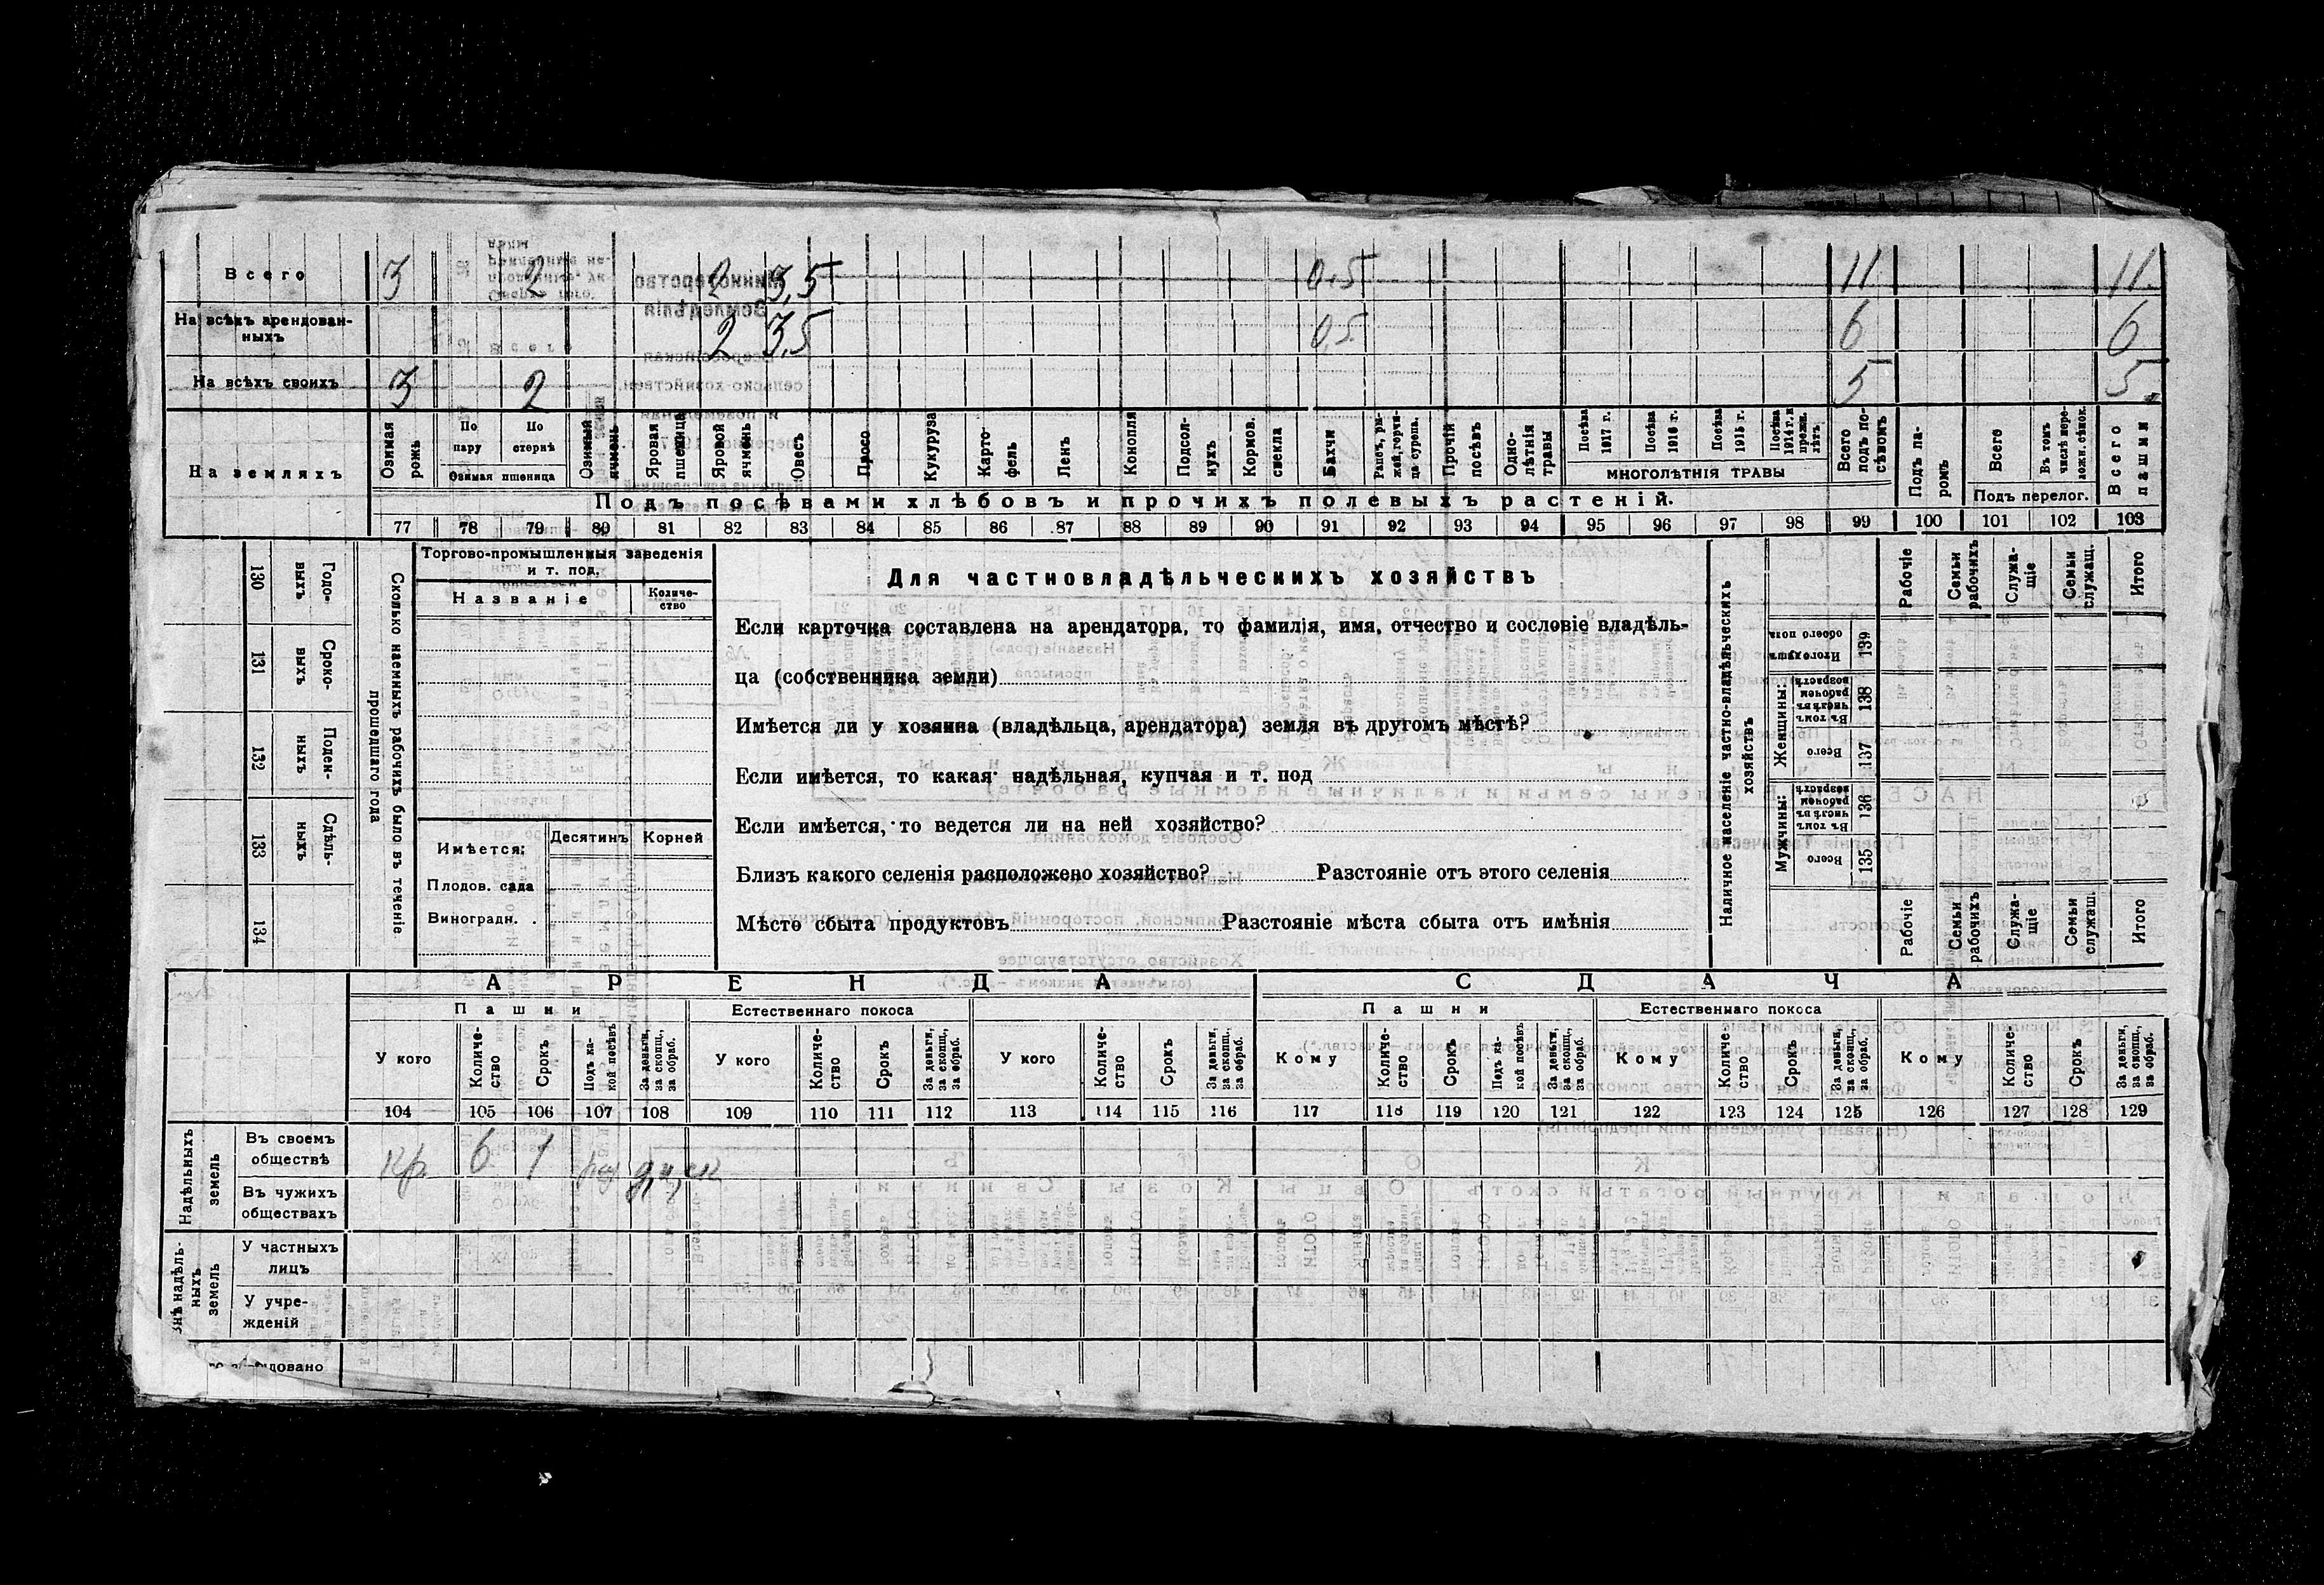 Всего 3 2 2 3,5 0,5 11 11.
На всѣхъ арендован-
ныхъ 2 3,5 0,5 6 6
На всѣхъ своихъ 3 2 5 5.
На земляхъ
Озимая рожь
По пару
По стернѣ
Озимая пшеница
Озимый ячмень
Яровая пшеница
Яровой ячмень
Овесъ
Просо
Кукуруза
Карто-
фель
Ленъ
Конопля
Подсол-
нухъ
Кормов.
свекла
Бахчи
Рапсъ, ры-
жей, горчи-
ца сурепа.
Прочій
посѣвъ
Одно-
лѣтнія
травы
Посѣва
1917 г.
Посѣва
1916 г.
Посѣва
1915 г.
Посѣва
1914 г. и
прежн.
лѣтъ
МНОГОЛѢТНІЯ ТРАВЫ
Всего
подъ по-
сѣвомъ
Подъ па-
ромъ
Всего
Въ томъ
числѣ пере-
ложн. сѣнок.
Подъ перелог.
Всего
пашни
Подъ посѣвами хлѣбовъ и прочихъ полевыхъ растеній.
77 78 79 80 81 82 83 84 85 86 87 88 89 90 91 92 93 94 95 96 97 98 99 100 101 102 103
130 Годо-
выхъ
131 Сроко-
выхъ
132 Поден-
ныхъ
133 Сдѣль-
ныхъ
134
Сколько наемныхъ рабочихъ было въ теченіе
прошедшаго года
Торгово-промышленныя заведенія
и т. под.
Названіе
Количе-
ство
Имѣется:
Десятинъ
Корней
Плодов. сада
Виноградн.
Для частновладѣльческихъ хозяйствъ
Если карточка составлена на арендатора, то фамилія, имя, отчество и сословіе владѣль-
ца (собственника земли)
Имѣется ли у хозяина (владѣльца, арендатора) земля въ другомъ мѣстѣ?
Если имѣется, то какая: надѣльная, купчая и т. под
Если имѣется, то ведется ли на ней хозяйство?
Близъ какого селенія расположено хозяйство? Разстояніе отъ этого селенія
Место сбыта продуктовъ Разстояніе мѣста сбыта отъ имѣнія
Наличное населеніе частно-владѣльческихъ
хозяйствъ
Рабочіе
Семьи
рабочихъ
Служа-
щіе
Семьи
служащ.
Итого
Итого душъ
обоего пола
139
Женщины:
Въ томъ
числѣ въ
рабочем
возрастѣ
138
Всего
137
Мужчины:
Въ томъ
числѣ въ
рабочем
возрастѣ
136
Всего
135
Рабочіе
Семьи
рабочихъ
Служа-
щіе
Семьи
служащ.
Итого
АРЕНДА
СДАЧА
Пашни
Естественнаго покоса
Пашни
Естественнаго покоса
У кого
Количе-
ство
Срокъ
Подъ ка-
кой посѣвъ
За деньги,
за скопщ.,
за обраб.
У кого
Количе-
ство
Срокъ
За деньги,
за скопщ.,
за обраб.
У кого
Количе-
ство
Срокъ
За деньги,
за скопщ.,
за обраб.
Кому
Количе-
ство
Срокъ
Подъ ка-
кой посѣвъ
За деньги,
за скопщ.,
за обраб.
Кому
Количе-
ство
Срокъ
За деньги,
за скопщ.,
за обраб.
Кому
Количе-
ство
Срокъ
За деньги,
за скопщ.,
за обраб.
104 105 106 107 108 109 110 111 112 113 114 115 116 117 118 119 120 121 122 123 124 125 126 127 128 129
Надѣльныхъ
земель
Въ своемъ
обществѣ
кр. 6 1
Въ чужихъ
обществахъ
Внѣ надѣль-
ныхъ
земель
У частныхъ
лицъ
У учре-
жденій